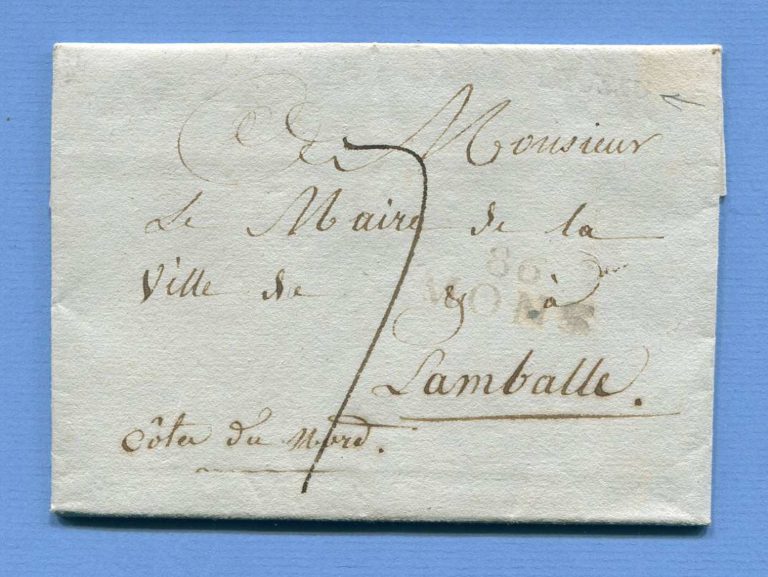 A Monsieur
Le Maire de la
Ville de & à
Lamballe.
Côtes du Nord.
7
86
MONS